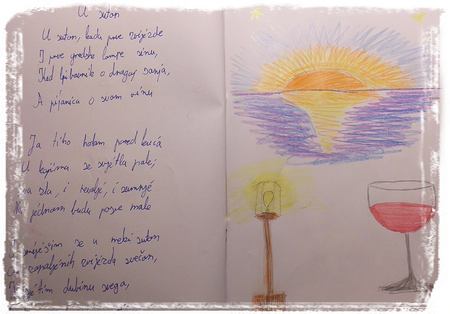 U suton
U suton, kada prve zvijezde
I prve gradske lampe sinu,
Kad ljubavnik o dragoj sanja,
A pijanica o svom vinu
Ja tiho hodam pored kuća
U kojima se svjetla pale;
zla, i nevolje, i sumnje
jednom budu posve male
se u meki suton
zapaljenih zvijezda svečan,
dubinu svega,